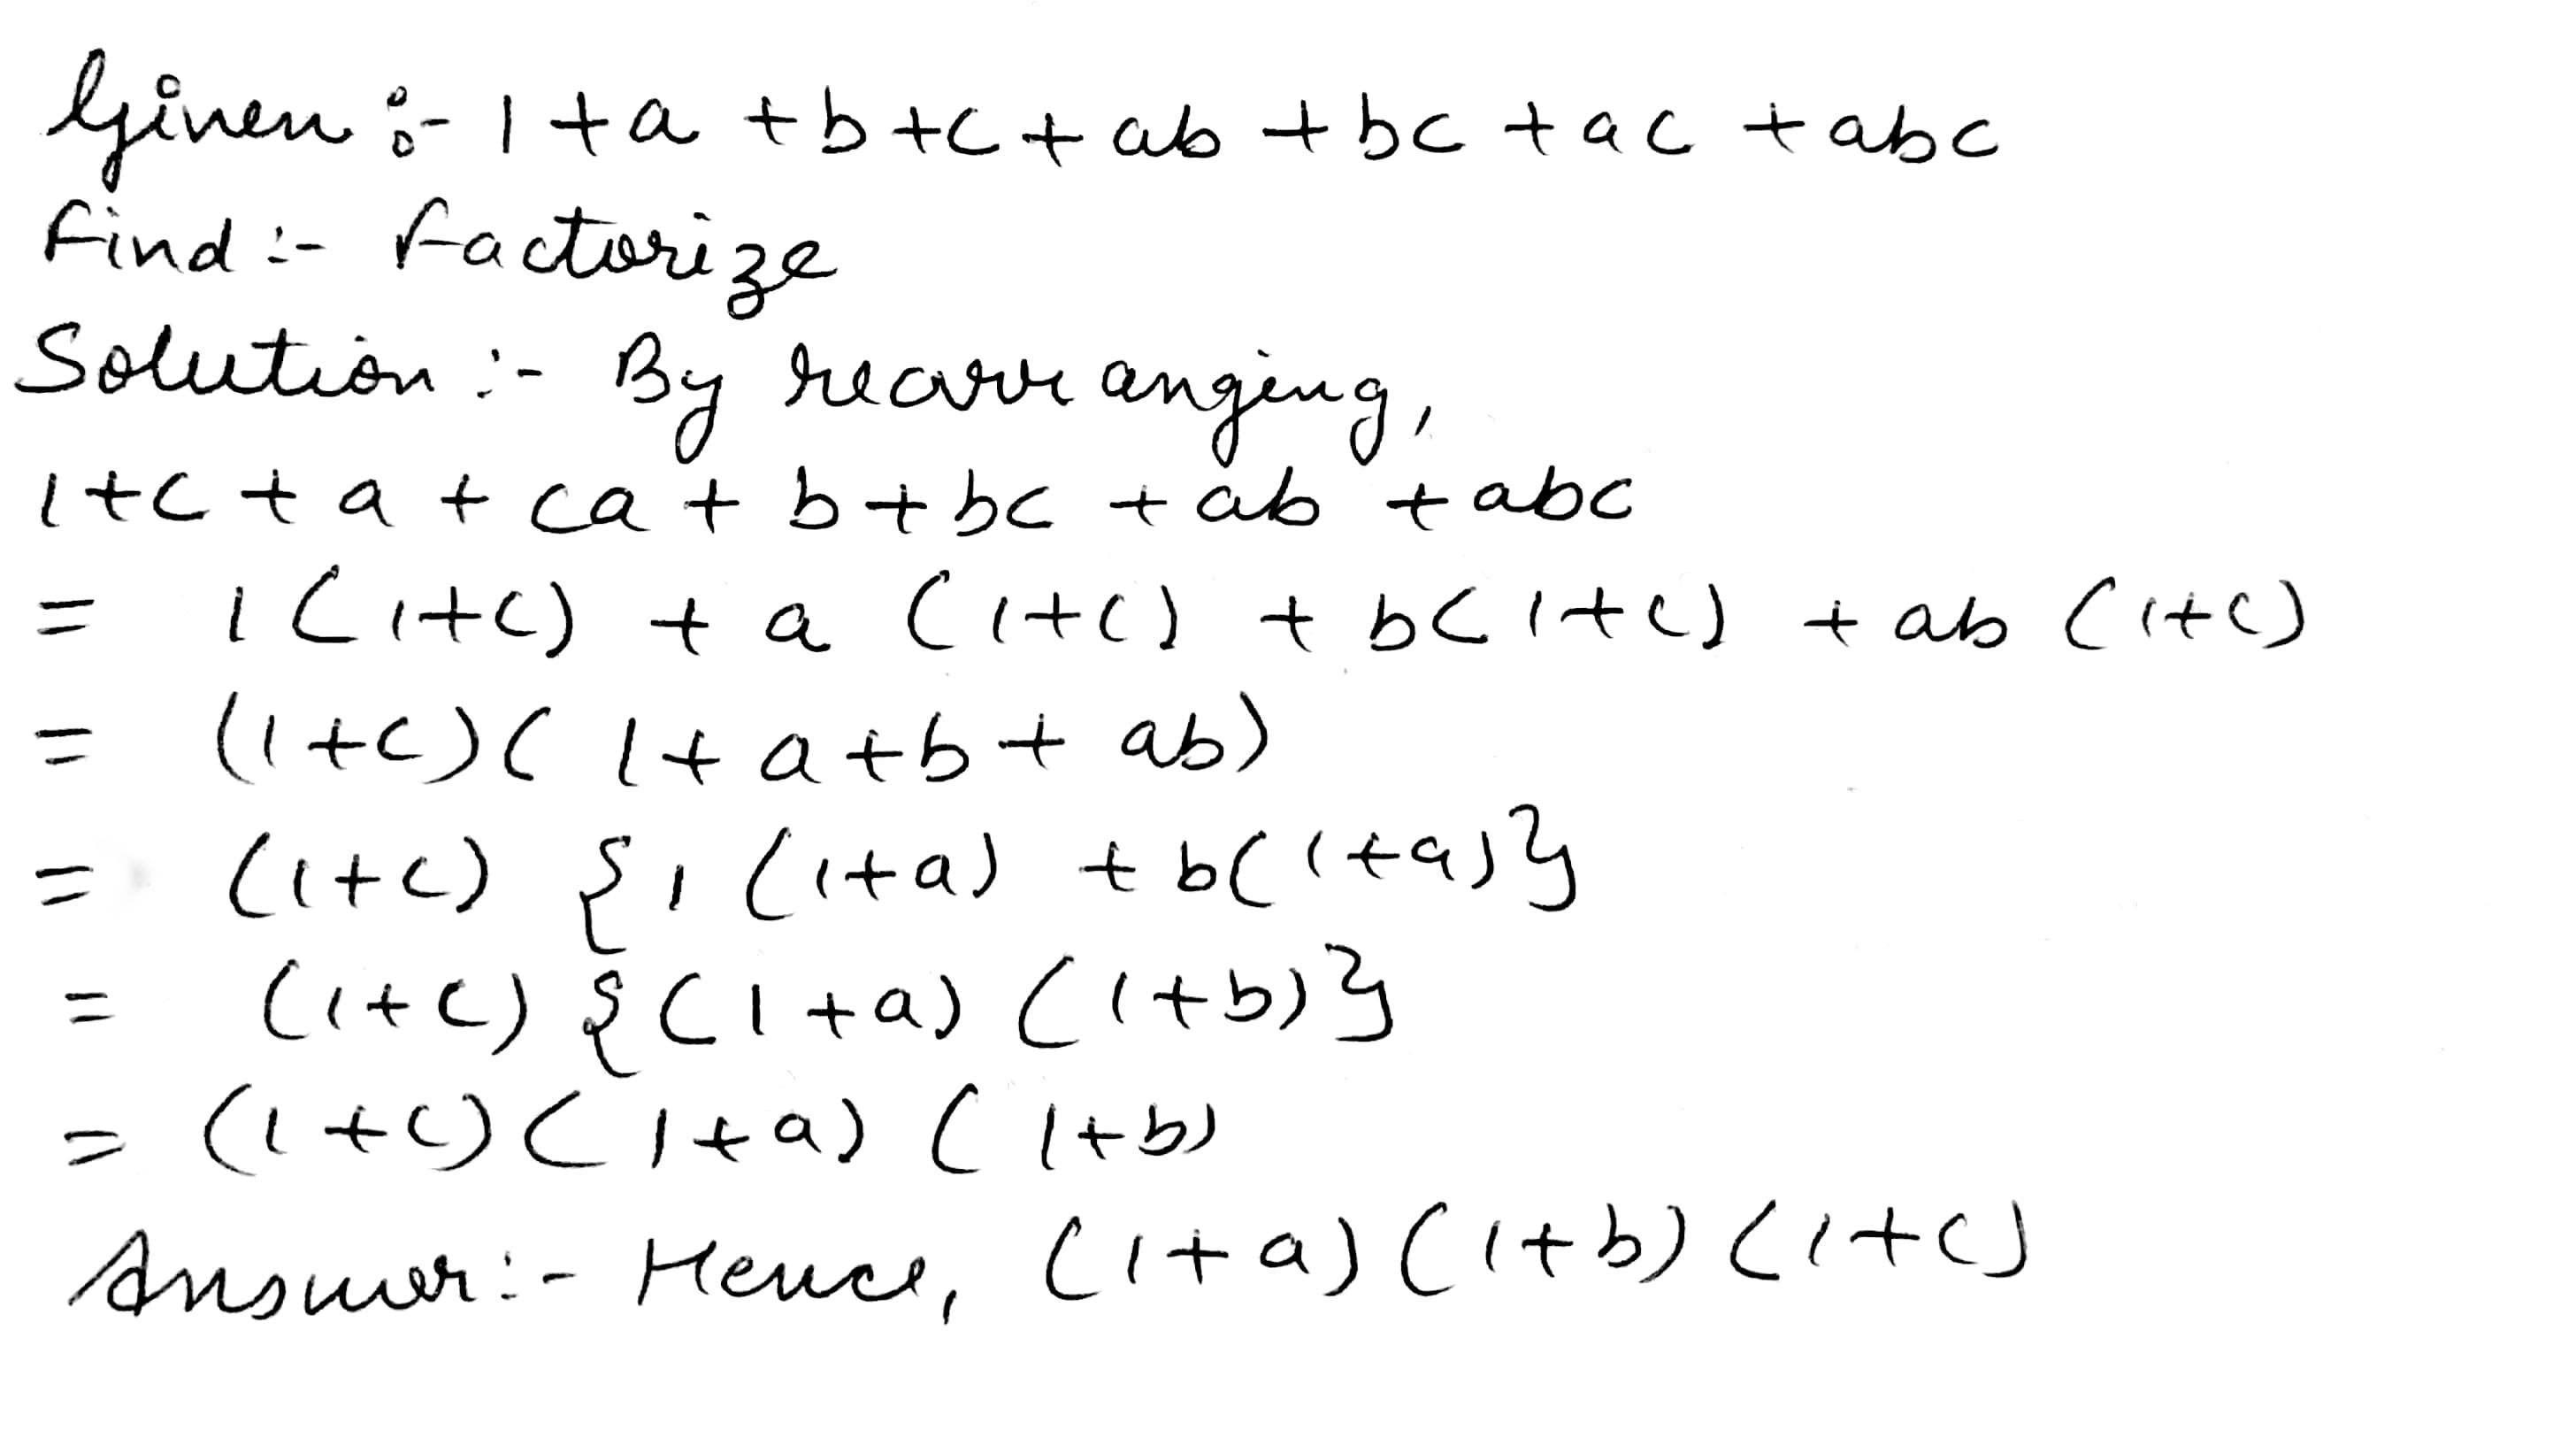 Given :- 1 + a + b + c + ab + bc + ac + abc
Find :- Factorize
Solution :- By rearranging,
1 + c + a + ca + b + bc + ab + abc
= 1 (1+c) + a (1+c) + b(1+c) + ab (1+c)
= (1+c)( 1 + a + b + ab)
= (1+c) {1 (1+a) + b(1+a)}
= (1+c) {(1+a) (1+b)}
= (1+c) (1+a) (1+b)
Answer :- Hence, (1+a) (1+b) (1+c)